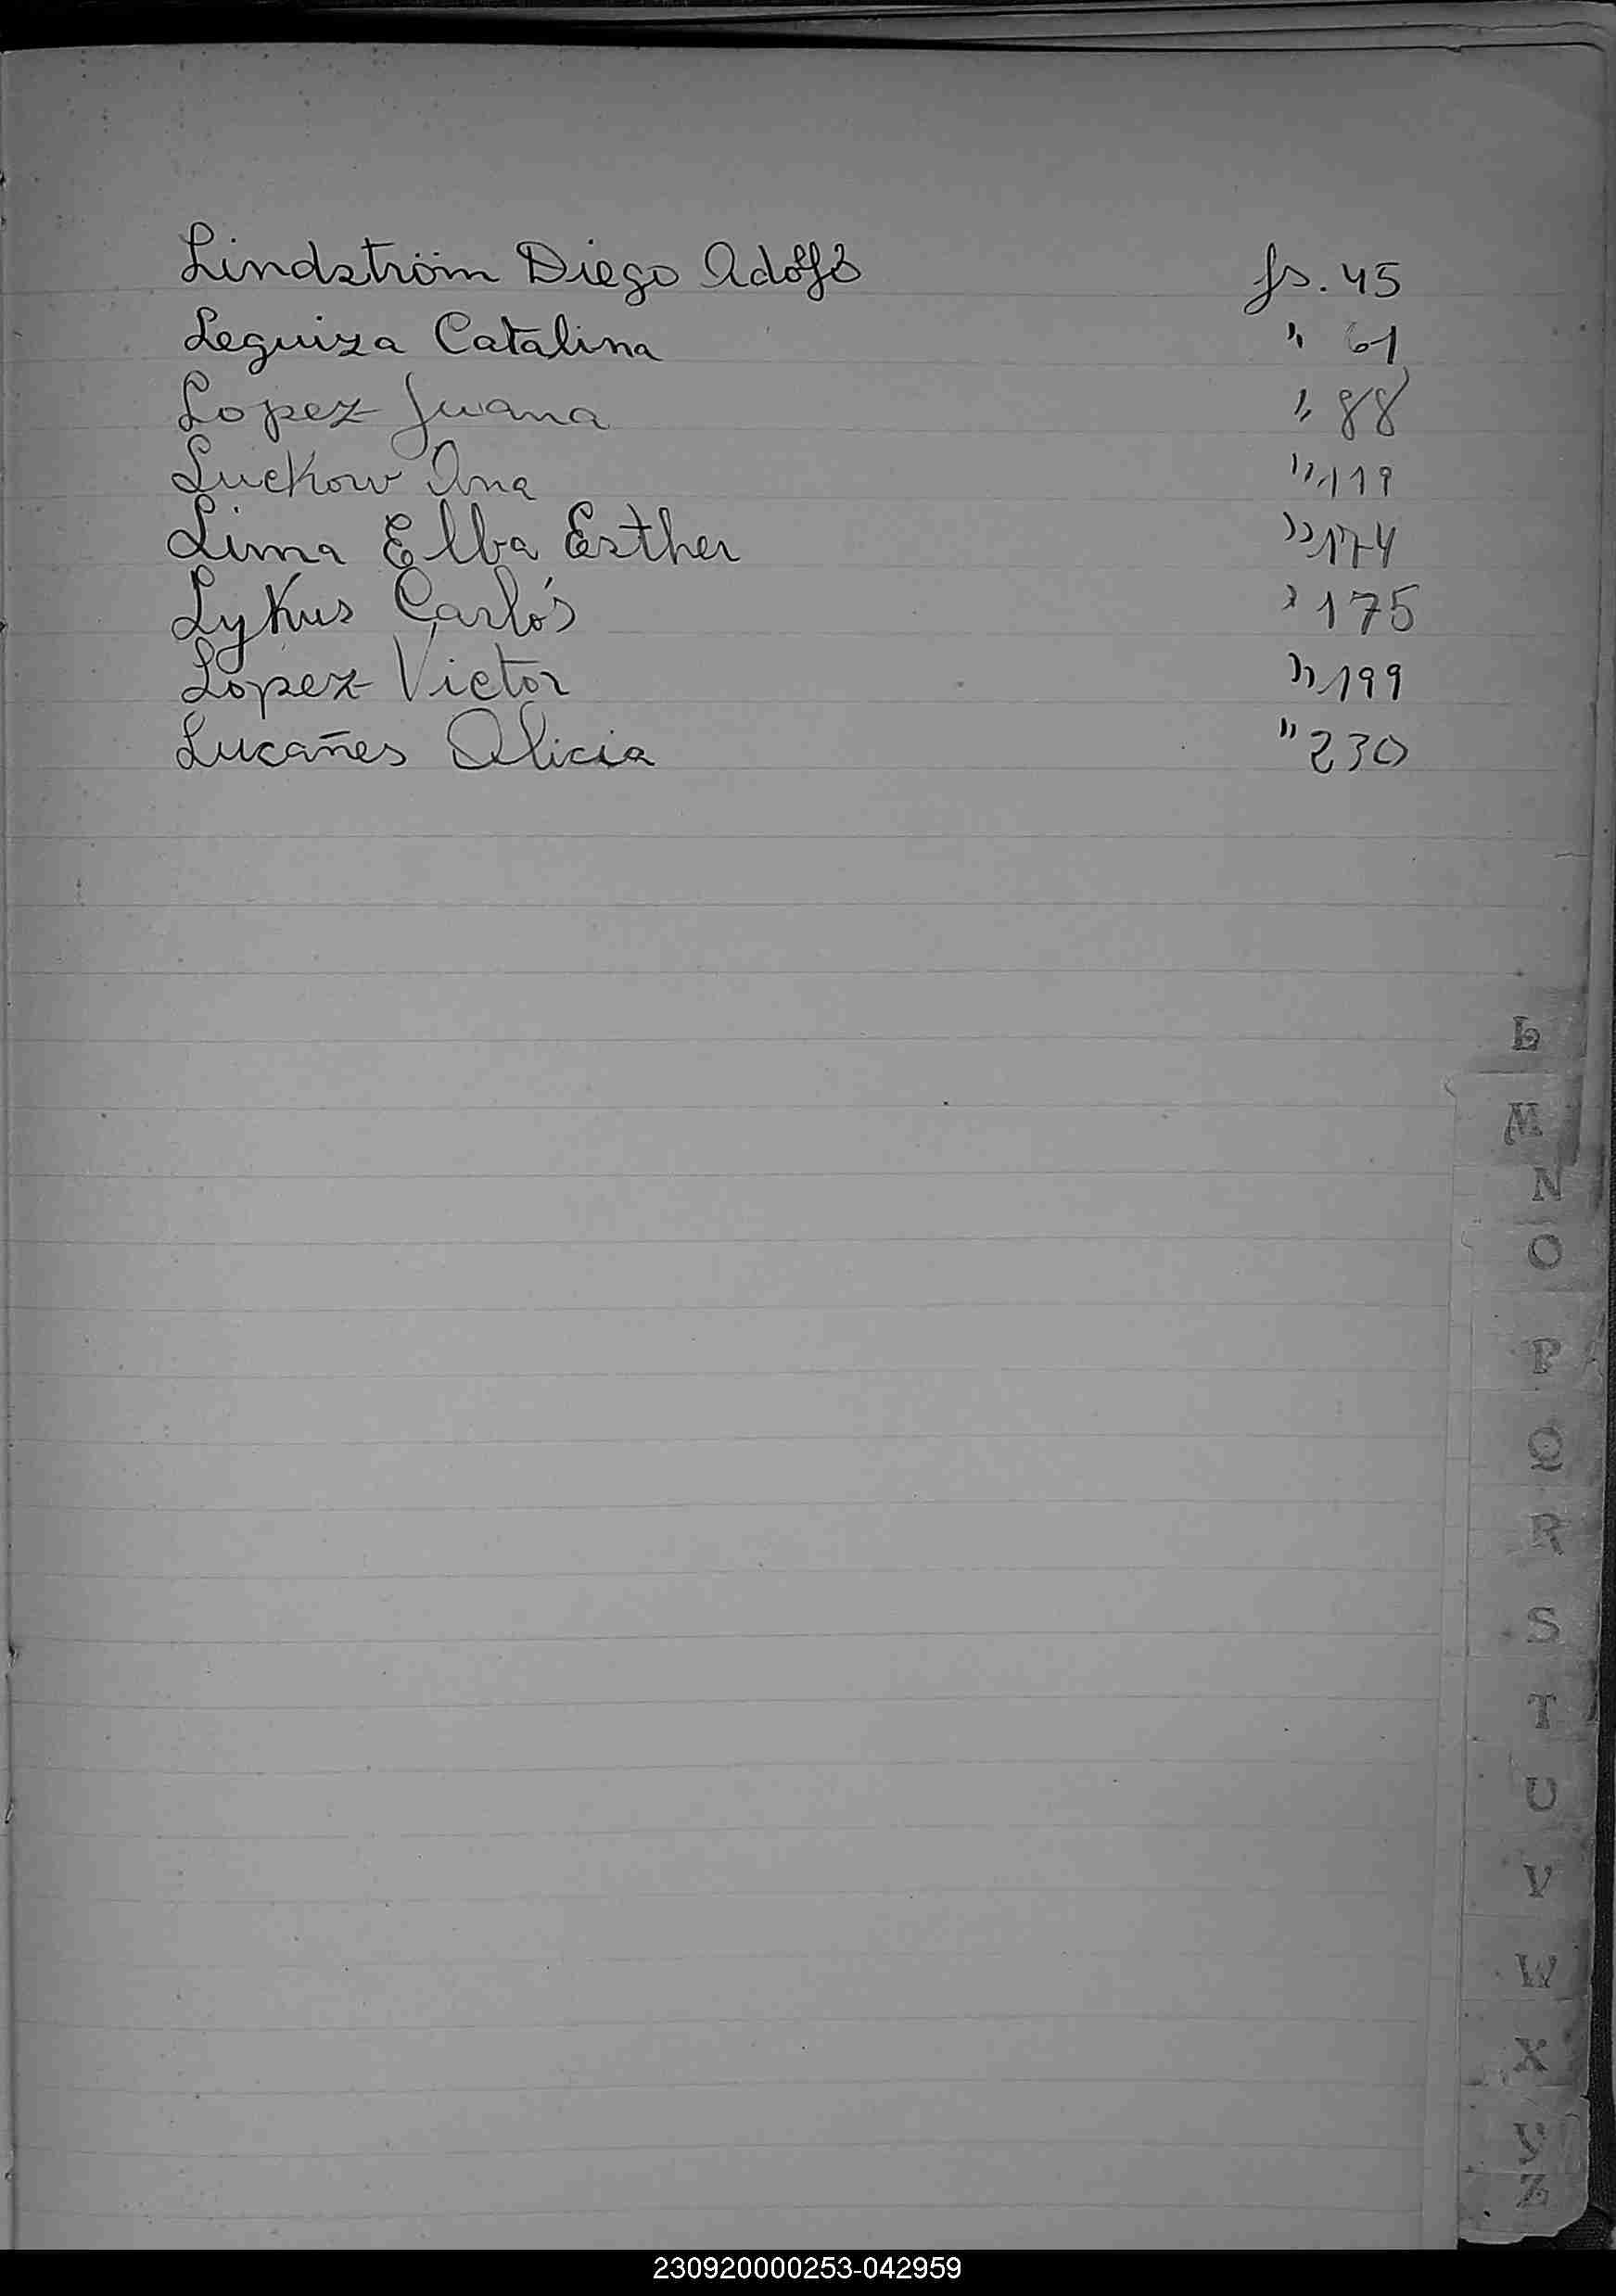 Lindström Diego Adolfo fs. 45
Leguiza Catalina " 61
Lopez Juana " 88
Luckow Ana " 119
Lima Elba Esther " 174
Lykus Carlos " 175
Lopez Victor " 199
Lucañes Alicia " 230
L
M
N
O
P
Q
R
S
T
U
V
W
X
Y
Z
230920000253-042959